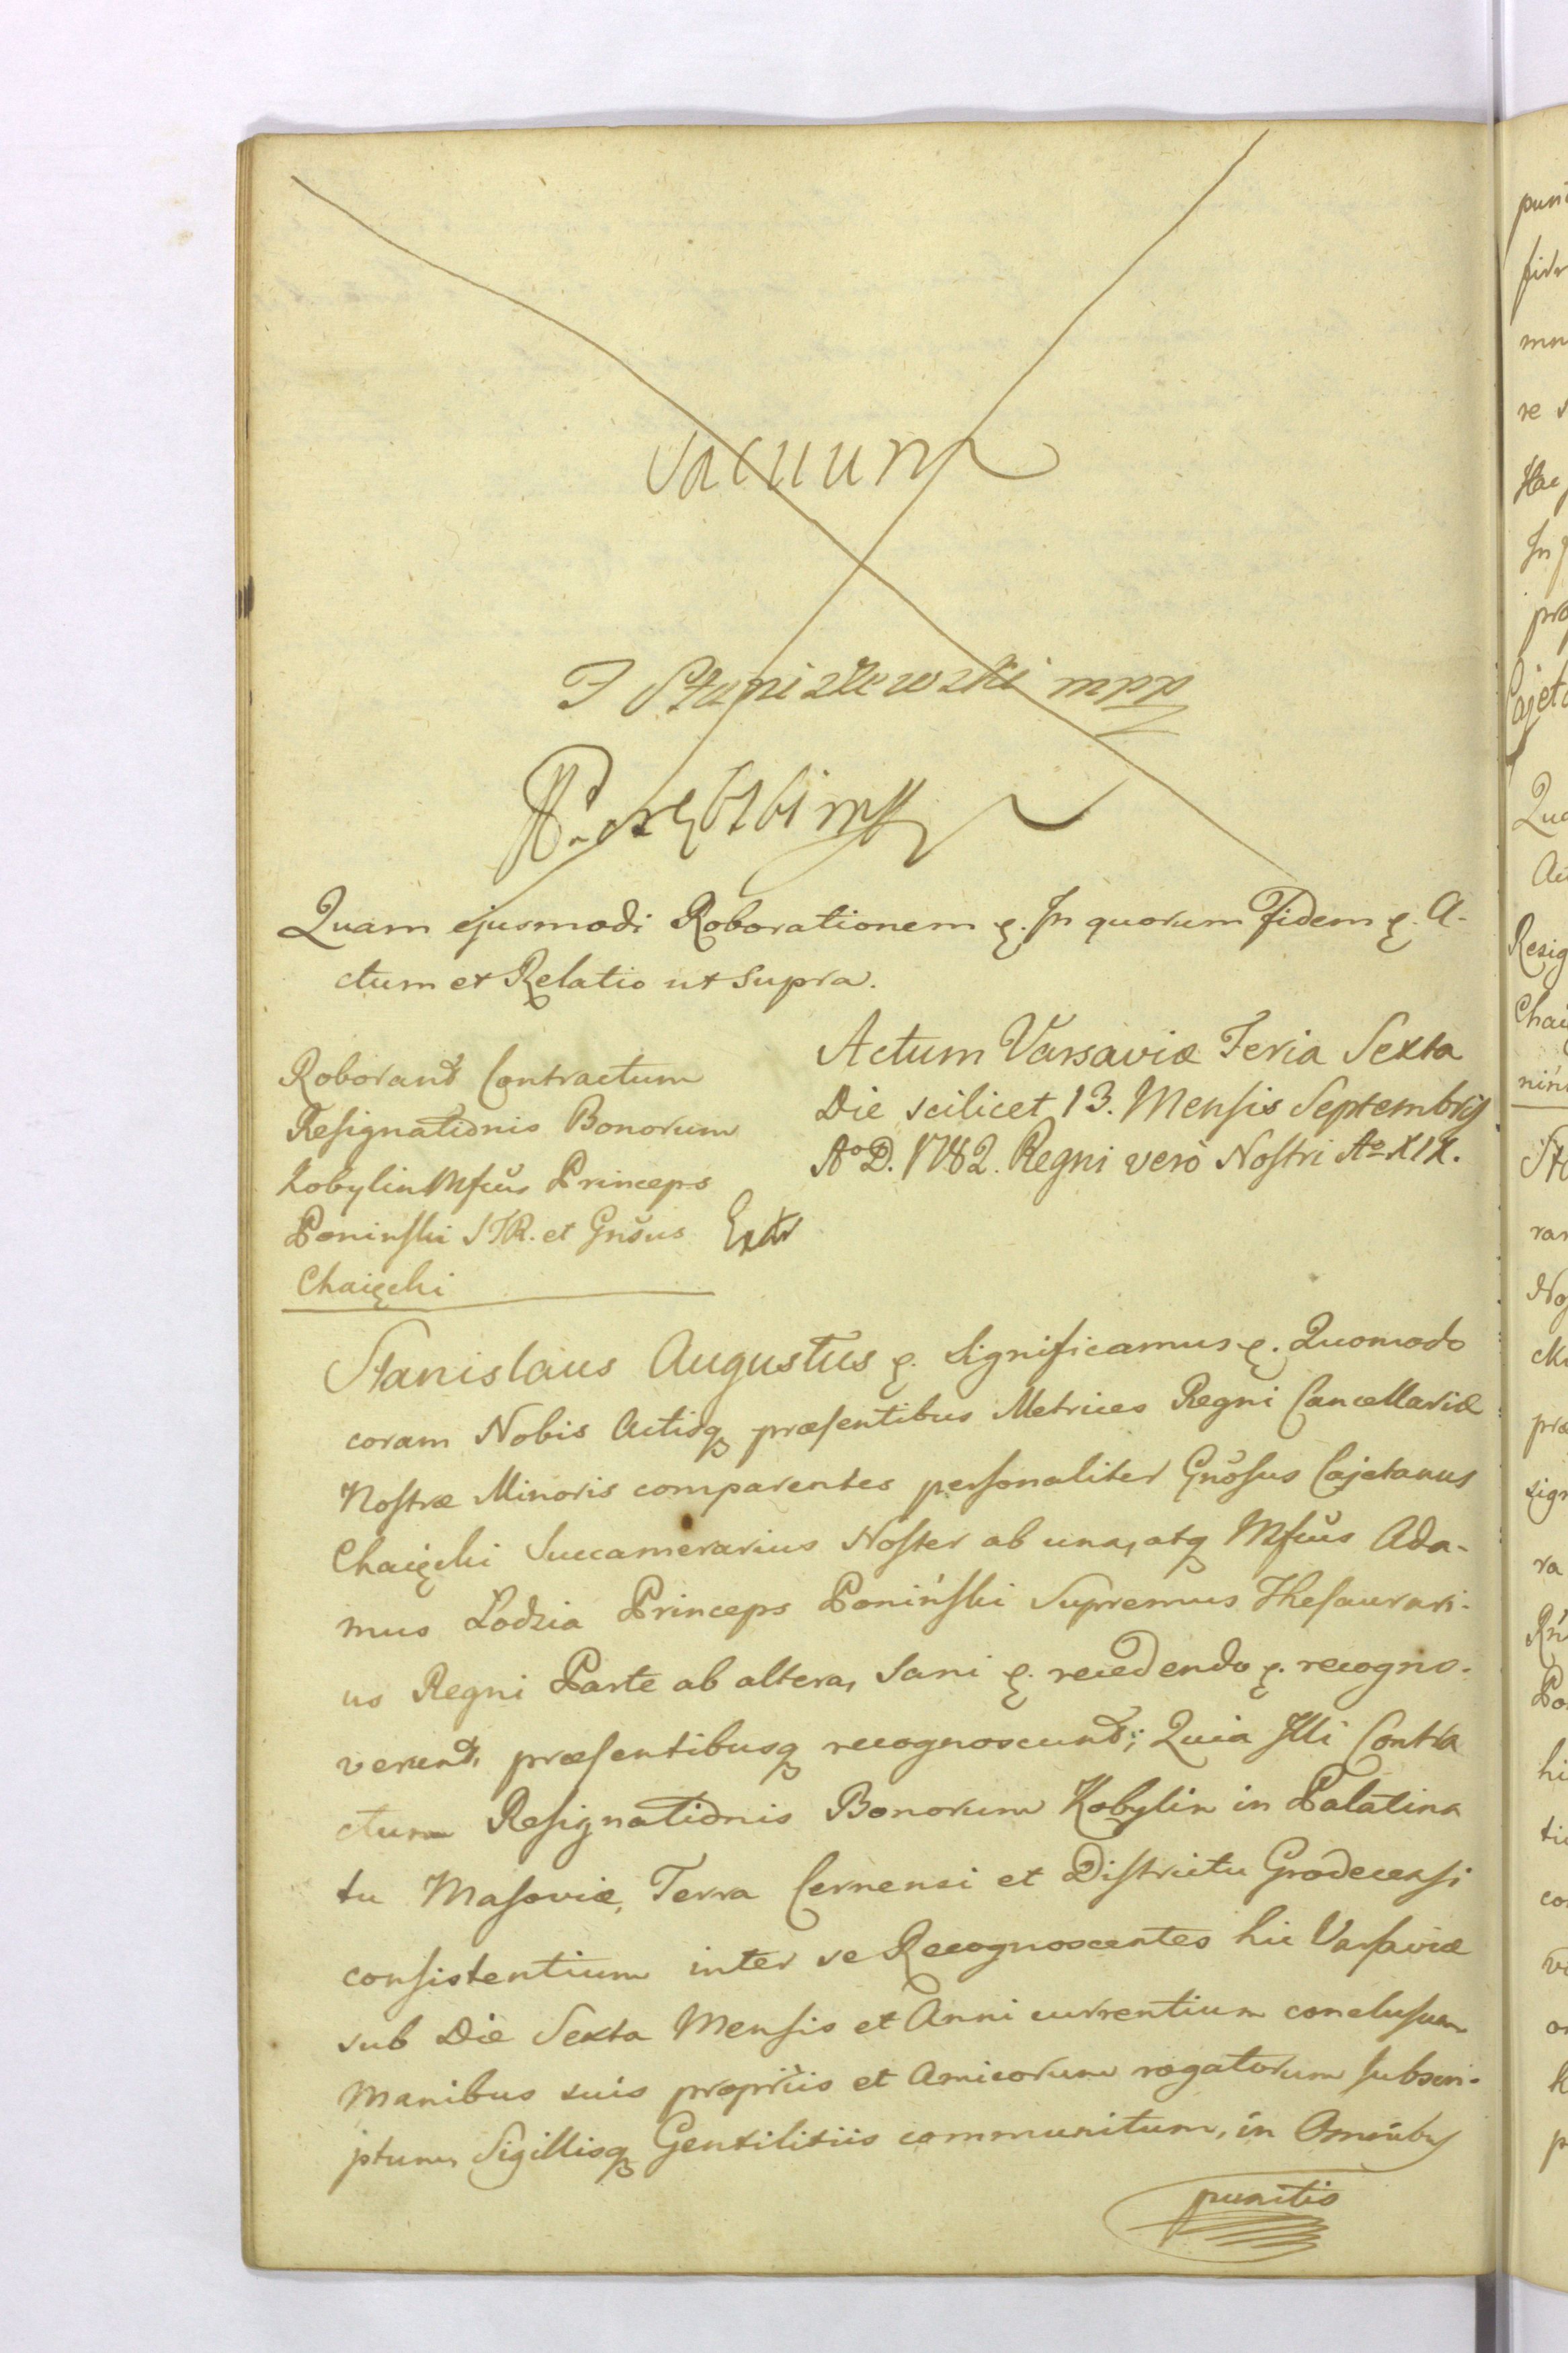 vacuum
J Staniszewski mpp
Quam ejusmodi Roborationem ę. In quorum Fidem ę. A-
ctum et Relatio ut supra.
Roborant Contractum
Resignationis Bonorum
Kobylin Mfcus Princeps
Poninski S T R. et Gnosus Extr
Chaięcki
Actum Varsaviæ Feria Sexta
Die scilicet 13. Mensis Septembris
Ao D. 1782. Regni verò Nostri Ao XIX.
Stanislaus Augustus ę. Significamus ę. Quomodo
coram Nobis Actisq præsentibus Metrices Regni Cancellariæ
Nostræ Minoris comparentes personaliter Gnosus Cajetanus
Chaięcki Succamerarius Noster ab una, atq Mfcus Ada-
mus Łodzia Princeps Poniński Supremus Thesaurari-
us Regni Parte ab altera, Sani ę. recedendo ę. recogno-
verunt, præsentibusq recognoscunt; Quia Illi Contra
ctum Resignationis Bonorum Kobylin in Palatina
tu Masoviæ, Terra Cernensi et Districtu Grodecensi
consistentium inter se Recognoscentes hic Varsaviæ
sub Die Sexta Mensis et Anni currentium conclusum
Manibus suis propriis et Amicorum rogatorum subscri-
ptum, Sigillisq Gentilitiis communitum, in Omnibus
punctis